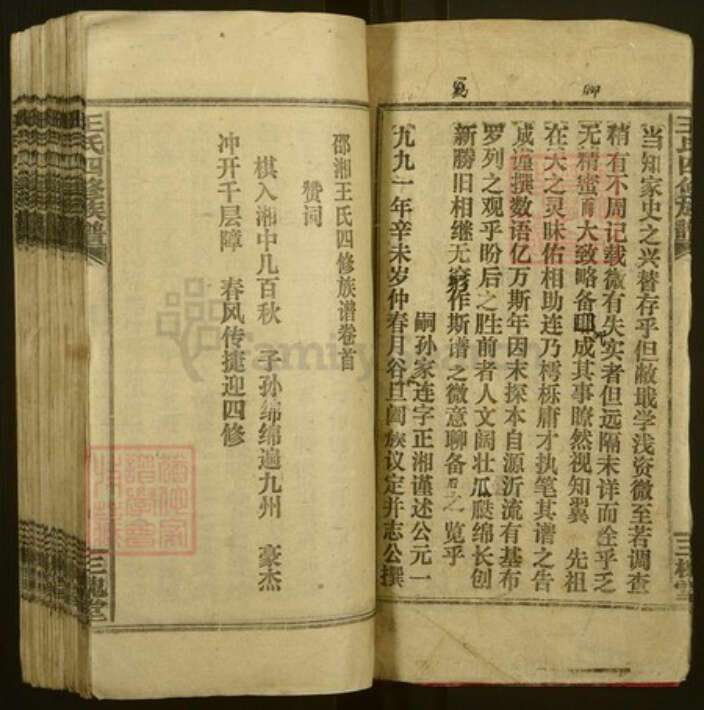 王氏四修族谱
三槐堂
卿
当知家史之兴替存乎但敝哦学浅资微至若调查
稍有不周记载微有失实者但远隔未详而全乎乏
无精蜜而大致略备即成其事瞭然视知翼 先祖
在天之灵昧佑相助连乃樗栎庸才执笔其谱之告
成谨撰数语亿万斯年因末探本自源沂流有基布
罗列之观乎盼后之胜前者人文阔壮瓜瓞绵长创
新勝旧相继无穷作斯谱之微意聊备之览乎
嗣孙家连字正湘谨述公元一
九九一年辛未岁仲春月谷旦阖族议定并志公撰
邵湘王氏四修族谱卷首
赞词
棋入湘中几百秋 子孙绵绵遍九州 豪杰
冲开千层障 春风传捷迎四修
王氏四修族谱
三槐堂